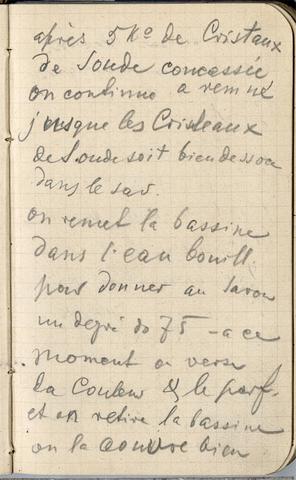 après 5 Ko de Cristaux
de Soude concassée
on continue a remué
jusque les Cristeaux
de Soude soit bien dessou
dans le sav.
on remet la bassine
dans l'eau bouill.
pour donner au Savon
un degré do 75 - a ce
moment on verse
la Couleur & le parf.
et on retire la bassine
on la couvre bien